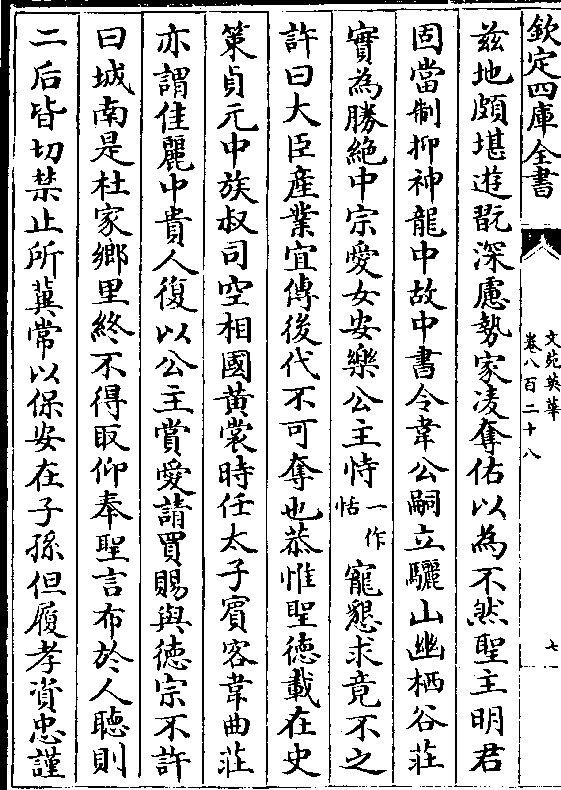 欽定四庫全書
文苑英華
卷八百二十八
七
茲地頗堪遊翫深慮勢家凌奪佑以為不然聖主明君
固當制抑神龍中故中書令韋公嗣立驪山幽栖谷莊
實為勝絶中宗愛女安樂公主恃一作怙寵懇求竟不之
許曰大臣産業宜傳後代不可奪也恭惟聖德載在史
策貞元中族叔司空相國黄裳時任太子賓客韋曲莊
亦謂佳麗中貴人復以公主賞愛請買賜與德宗不許
曰城南是杜家鄉里終不得取仰奉聖言布於人聽則
二后皆切禁止所冀常以保安在子孫但履孝資忠謹